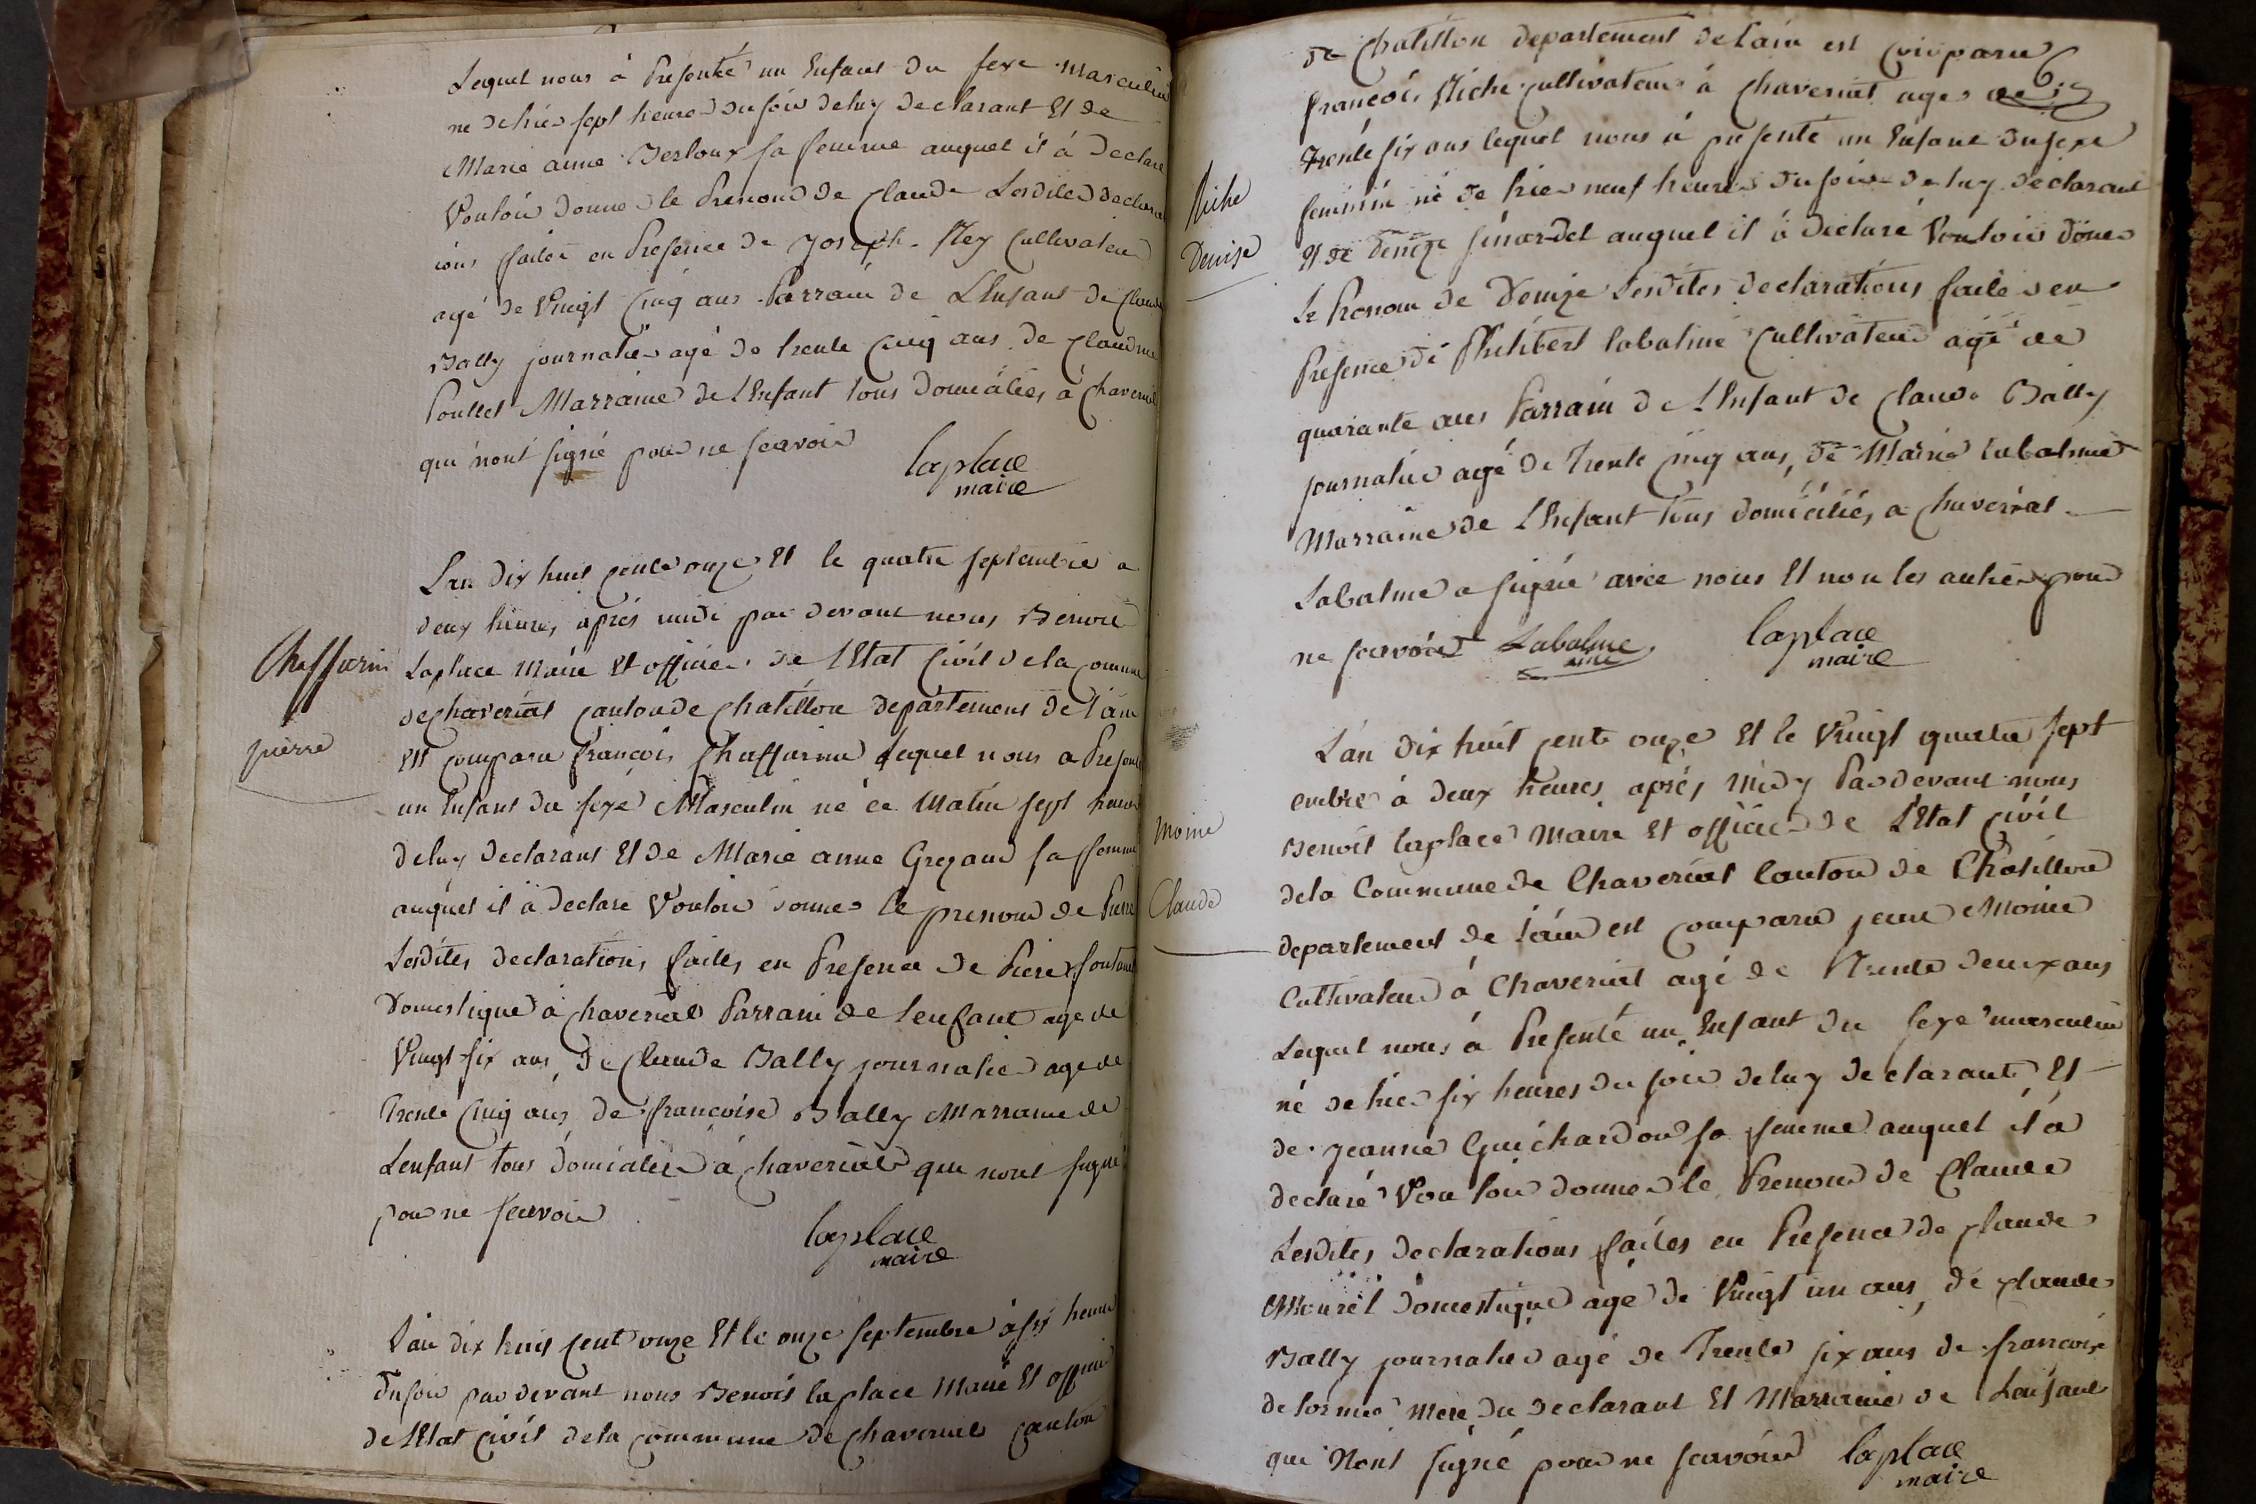 Lequel nous à Presenté un Enfant du sexe masculin
ne de hier sept heures du soir de luy declarant Et de
Marie anne Berloux sa femme auquel il à Declaré
Vouloir donner le Prenom de Claude Lesdites declarat
ions faites en Presence de Joseph Rey Cultivateur
agé de Vingt Cinq ans Parrain de L'Enfant de Claude
Bally journalier agé de trente Cinq ans de Claudine
Poullet Marraine de L'Enfant tous domiciliés à Chaveriat
qui n'ont signé pour ne scavoir
laplace
maire
L'an dix huit cents onze Et le quatre septembre a
deux heures après midi par devant nous Benoit
Laplace Maire Et officier de l'Etat Civil de la comune
de chaveriat canton de Chatillon departement de l'ain
est comparu françois Chaffurin Lequel nous a Presenté
un Enfant du sexe Masculin né ce Matin sept heures
de luy declarant Et de Marie anne Grezaud sa femme
auquel il à declaré Vouloir donner le prenom de Pierre
Lesdites declarations faites en Presence de Piere fontane
Domestique à chaveriat Parrain de l'enfant age de
Vingt six ans, De Claude Bally journalier age de
Trente Cinq ans, de françoise Bally Marraine de
L'enfant tous domiciliés à chaveriat qui n'ont signé
pour ne scavoir
laplace
maire
L'an dix huit cent onze Et le onze septembre à six heures
du soir par devant nous Benoit laplace Maire Et officier
de l'Etat Civil de la commune de Chaveriat canton
Chaffurin
pierre
de Chatillon departement de l'ain est comparu
françois Riche cultivateur à Chaveriat ages de
trente six ans lequel nous à presenté un Enfant du sexe
feminin né de hier neuf heures du soir de luy declarant
Et de Denize sinardet auquel il à declaré Vouloir doner
le Prenom de Denize Lesdites declarations faites en
Presence de Philibert labalme Cultivateur agé de
quarante ans Parrain de L'Enfant de Claude Bally
journalier agé de Trente Cinq ans, de Marie labalme
Marraine de L'Enfant tous domiciliés a chaveriat
Labalme a signé avec nous Et non les autres pour
ne scavoir Labalme laplace
maire
Riche
Denise
L'an dix huit cents onze Et le Vingt quatre sept
embre à deux heures après midy Par devant nous
Benoit laplace Maire Et officier de L'Etat Civil
de la Commune de Chaveriat Canton de Chatillon
departement de l'ain est comparu jean Moine
Cultivateur à Chaveriat agé de Trente deux ans
Lequel nous à Presenté un Enfant du sexe masculin
né de hier six heures du soir de luy declarant Et
de jeanne Guichardon sa femme auquel il à
declaré Vouloir donner le Prenom de Claude
Lesdites declarations faites en Presence de Claude
Mourel domestique agé de Vingt un ans, de Claude
Bally journalier agé de Trente six ans de françoise
delorme mere du declarant Et Marraine de L'enfant
qui N'ont signé pour ne scavoir laplace
maire
Moine
Claude